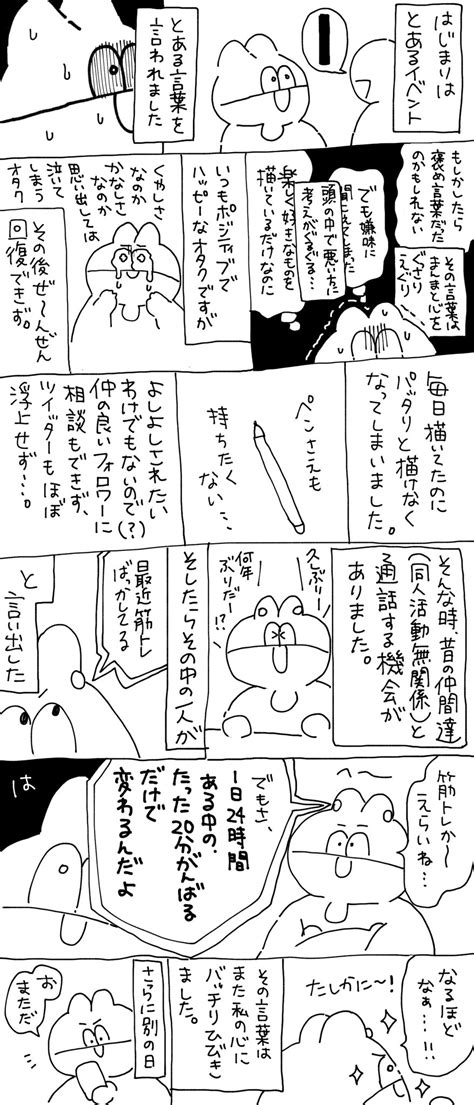 はじまりは
とあるイベント
とある言葉を
言われました
もしかしたら
褒め言葉だった
のかもしれない
その言葉は
まんまと心を
ぐさり
えぐり
でも嫌味に
聞こえてしまった
頭の中で悪い方に
考えがぐるぐる…
楽しく好きなものを
描いているだけなのに
いつもポジティブで
ハッピーなオタクですが
くやしさ
なのか
かなしさ
なのか
思い出しては
泣いて
しまう
オタク
その後ぜ〜んぜん
回復できず。
毎日描いてたのに
パッタリと描けなく
なってしまいました。
ペンさえも
持ちたく
ない…
よしよしされたい
わけでもないので(?)
仲の良いフォロワーに
相談もできず、
ツイッターもほぼ
浮上せず…。
そんな時、昔の仲間達
(同人活動無関係)と
通話する機会が
ありました。
久しぶりー!
何年
ぶりだー!?
そしたらその中の1人が
最近筋トレ
ばっかしてる
と
言い出した
筋トレか〜
えらいね…
へ〜
でもさ、
1日24時間
ある中の、
たった20分がんばる
だけで
変わるんだよ
は
なるほど
なぁ…!!
たしかに〜!
その言葉は
また私の心に
バッチリひびき
ました。
さらに別の日
お
まただ